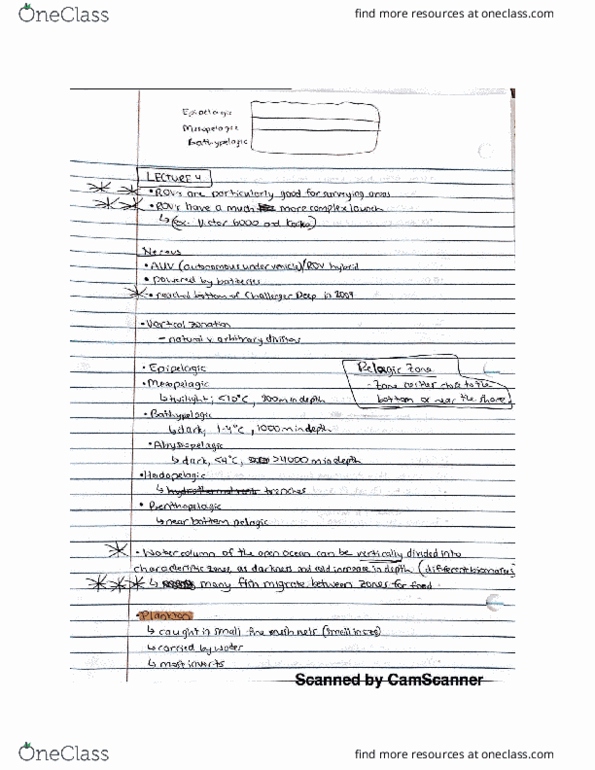 OneClass
find more resources at oneclass.com
Epipelagic
Mesopelagic
Bathypelagic
LECTURE 4
• ROV's are particularly good for surveying areas
• ROV's have a much more complex launch
↳ (ex. Victor 6000 and
Nereus
• AUV (autonomous under vehicle)/ROV hybrid
• powered by batteries
• reached bottom of Challenger Deep in 2009
• Vertical zonation
- natural v. arbitrary divisions
• Epipelagic
• Mesopelagic
↳ twilight; <10°C, 200m in depth
• Bathypelagic
↳ dark, 1-4°C, 1000m in depth
• Abyssopelagic
↳ dark, <4°C, >4000 m in depth
• Hadopelagic
↳ trenches
• Benthopelagic
↳ near bottom pelagic
Pelagic Zone
- Zone neither close to the
bottom or near the shore
• Water column of the open ocean can be vertically divided into
characteristic zones, as darkness and cold increase in depth (different biomates)
↳ many fish migrate between zones for food
• Plankton
↳ caught in small fine mesh nets (small in size)
↳ carried by water
↳ most inverts
Scanned by CamScanner
OneClass
find more resources at oneclass.com